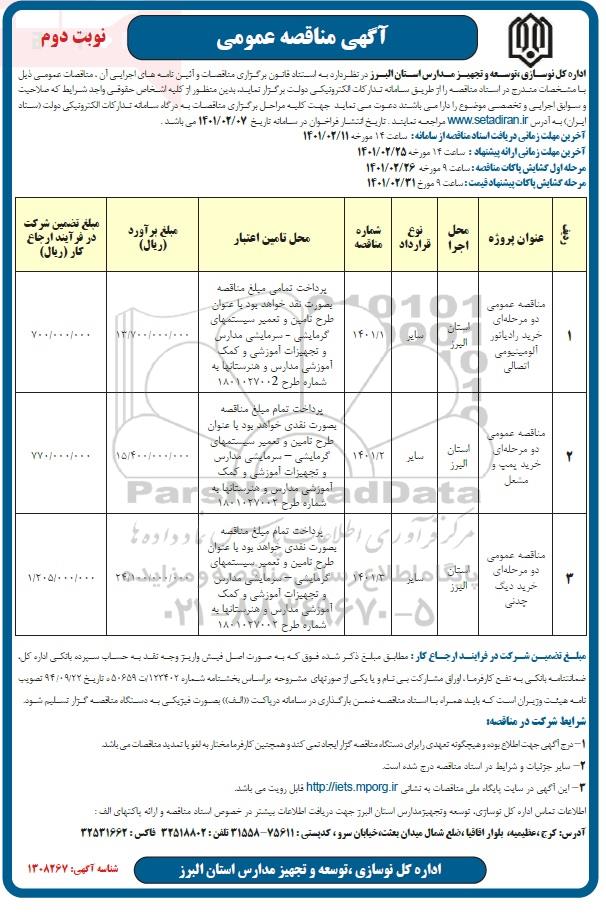 آگهی مناقصه عمومی
نوبت دوم
اداره کل نوسازی،توسعه و تجهیز مدارس استان البرز در نظر دارد به استناد قانون برگزاری مناقصات و آئین نامه های اجرایی آن ، مناقصات عمومی ذیل
با مشخصات مندرج در اسناد مناقصه را از طریق سامانه تدارکات الکترونیکی دولت برگزار نماید، بدین منظور از کلیه اشخاص حقوقی واجد شرایط که صلاحیت
و سوابق اجرایی و تخصصی موضوع را دارا می باشند دعوت می نماید جهت کلیه مراحل برگزاری مناقصات به درگاه سامانه تدارکات الکترونیکی دولت (ستاد
ایران) به آدرس www.setadiran.ir مراجعه نمایند . تاریخ انتشار فراخوان در سامانه تاریخ ۱۴۰۱/۰۲/۰۷ می باشد .
آخرین مهلت زمانی دریافت اسناد مناقصه از سامانه : ساعت ۱۴ مورخه ۱۴۰۱/۰۲/۱۱
آخرین مهلت زمانی ارائه پیشنهاد : ساعت ۱۴ مورخه ۱۴۰۱/۰۲/۲۵
مرحله اول گشایش پاکات مناقصه : ساعت ۹ مورخه ۱۴۰۱/۰۲/۲۶
مرحله گشایش پاکات پیشنهاد قیمت : ساعت ۹ مورخ ۱۴۰۱/۰۲/۳۱
ردیف | عنوان پروژه | محل اجرا | نوع قرارداد | شماره مناقصه | محل تامین اعتبار | مبلغ برآورد (ریال) | مبلغ تضمین شرکت در فرآیند ارجاع کار (ریال)
۱ | مناقصه عمومی دو مرحله‌ای خرید رادیاتور آلومینیومی اتصالی | استان البرز | سایر | ۱۴۰۱/۱ | پرداخت تمامی مبلغ مناقصه بصورت نقد خواهد بود با عنوان طرح تامین و تعمیر سیستمهای گرمایشی - سرمایشی مدارس و تجهیزات آموزشی و کمک آموزشی مدارس و هنرستانها به شماره طرح ۱۸۰۱۰۲۷۰۰2 | ۱۳/۷۰۰/۰۰۰/۰۰۰ | ۷۰۰/۰۰۰/۰۰۰
۲ | مناقصه عمومی دو مرحله‌ای خرید پمپ و مشعل | استان البرز | سایر | ۱۴۰۱/۲ | پرداخت تمام مبلغ مناقصه بصورت نقدی خواهد بود با عنوان طرح تامین و تعمیر سیستمهای گرمایشی – سرمایشی مدارس و تجهیزات آموزشی و کمک آموزشی مدارس و هنرستانها به شماره طرح ۱۸۰۱۰۲۷۰۰۲ | ۱۵/۴۰۰/۰۰۰/۰۰۰ | ۷۷۰/۰۰۰/۰۰۰
۳ | مناقصه عمومی دو مرحله‌ای خرید دیگ چدنی | استان البرز | سایر | ۱۴۰۱/۳ | پرداخت تمام مبلغ مناقصه بصورت نقدی خواهد بود با عنوان طرح تامین و تعمیر سیستمهای گرمایشی – سرمایشی مدارس و تجهیزات آموزشی و کمک آموزشی مدارس و هنرستانها به شماره طرح ۱۸۰۱۰۲۷۰۰۲ | ۲۴/۱۰۰/۰۰۰/۰۰۰ | ۱/۲۰۵/۰۰۰/۰۰۰
ParsNamadData
مرکز فرآوری اطلاعات پارس نماد داده‌ها
پایگاه اطلاع رسانی مناقصه و مزایده
۰۲۱-۸۸۳۴۹۶۷۰-۵
مبلغ تضمین شرکت در فرایند ارجاع کار : مطابق مبلغ ذکر شده فوق که به صورت اصل فیش واریز وجه نقد به حساب سپرده بانکی اداره کل،
ضمانتنامه بانکی به نفع کارفرما، اوراق مشارکت بی نام و یا یکی از صورتهای مشروحه براساس بخشنامه شماره ۱۲۳۴۰۲/ت ۵۰۶۵۹ ه تاریخ ۹۴/۰۹/۲۲ تصویب
نامه هیئت وزیران است که باید همراه با اسناد مناقصه ضمن بارگذاری در سامانه درپاکت ((الف)) بصورت فیزیکی به دستگاه مناقصه گزار تسلیم شود.
شرایط شرکت در مناقصه:
۱- درج آگهی جهت اطلاع بوده و هیچگونه تعهدی را برای دستگاه مناقصه گزار ایجاد نمی کند و همچنین کارفرما مختار به لغو یا تمدید مناقصات می باشد.
۲- سایر جزئیات و شرایط در اسناد مناقصه درج شده است.
۳- این آگهی در سایت پایگاه ملی مناقصات به نشانی http://iets.mporg.ir قابل رویت می باشد.
اطلاعات تماس اداره کل نوسازی، توسعه وتجهیزمدارس استان البرز جهت دریافت اطلاعات بیشتر در خصوص اسناد مناقصه و ارائه پاکتهای الف :
آدرس: کرج،عظیمیه، بلوار اقاقیا ،ضلع شمال میدان بعثت،خیابان سرو ، کدپستی : ۷۵۶۱۱-۳۱۵۵۸ تلفن : ۳۲۵۱۸۸۰۲ فاکس : ۳۲۵۳۱۶۶۲
اداره کل نوسازی ،توسعه و تجهیز مدارس استان البرز
شناسه آگهی: ۱۳۰۸۲۶۷